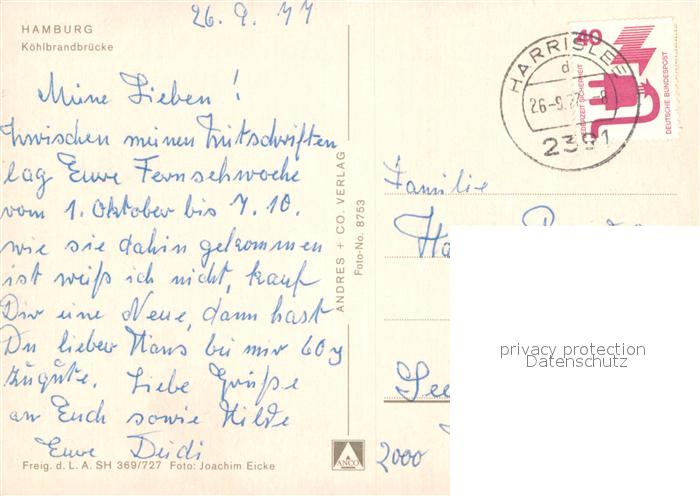 26.9.77
HAMBURG
Köhlbrandbrücke
Meine Lieben!
Zwischen meinen Zeitschriften
lag Eure Fernsehwoche
vom 1. Oktober bis 7.10.
wie sie dahin gekommen
ist weiß ich nicht, kauf
Dir eine Neue, dann hast
Du lieber Hans bei mir 60
zugute. Liebe Grüße
an Euch sowie Hilde
Eure Dudi
Freig. d. L. A. SH 369/727 Foto: Joachim Eicke
ANDRES + CO. VERLAG
Foto-No. 8753
ANCO
HARRISLEE
d
26-9.77-8
2391
40
JEDERZEIT SICHERHEIT
DEUTSCHE BUNDESPOST
Familie
2000
privacy protection
Datenschutz